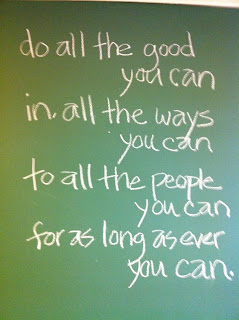 do all the good
you can
in all the ways
you can
to all the people
you can
for as long as ever
you can.